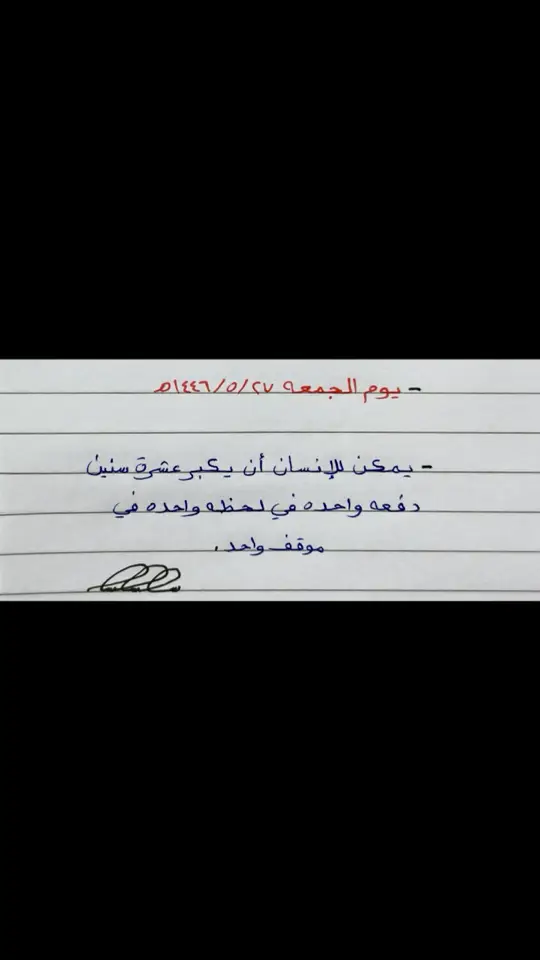 - يوم الجمعه ٢٧/٥/١٤٤٦هـ
- يمكن للإنسان أن يكبر عشرة سنين
دفعه واحده في لحظه واحده في
موقف واحد.